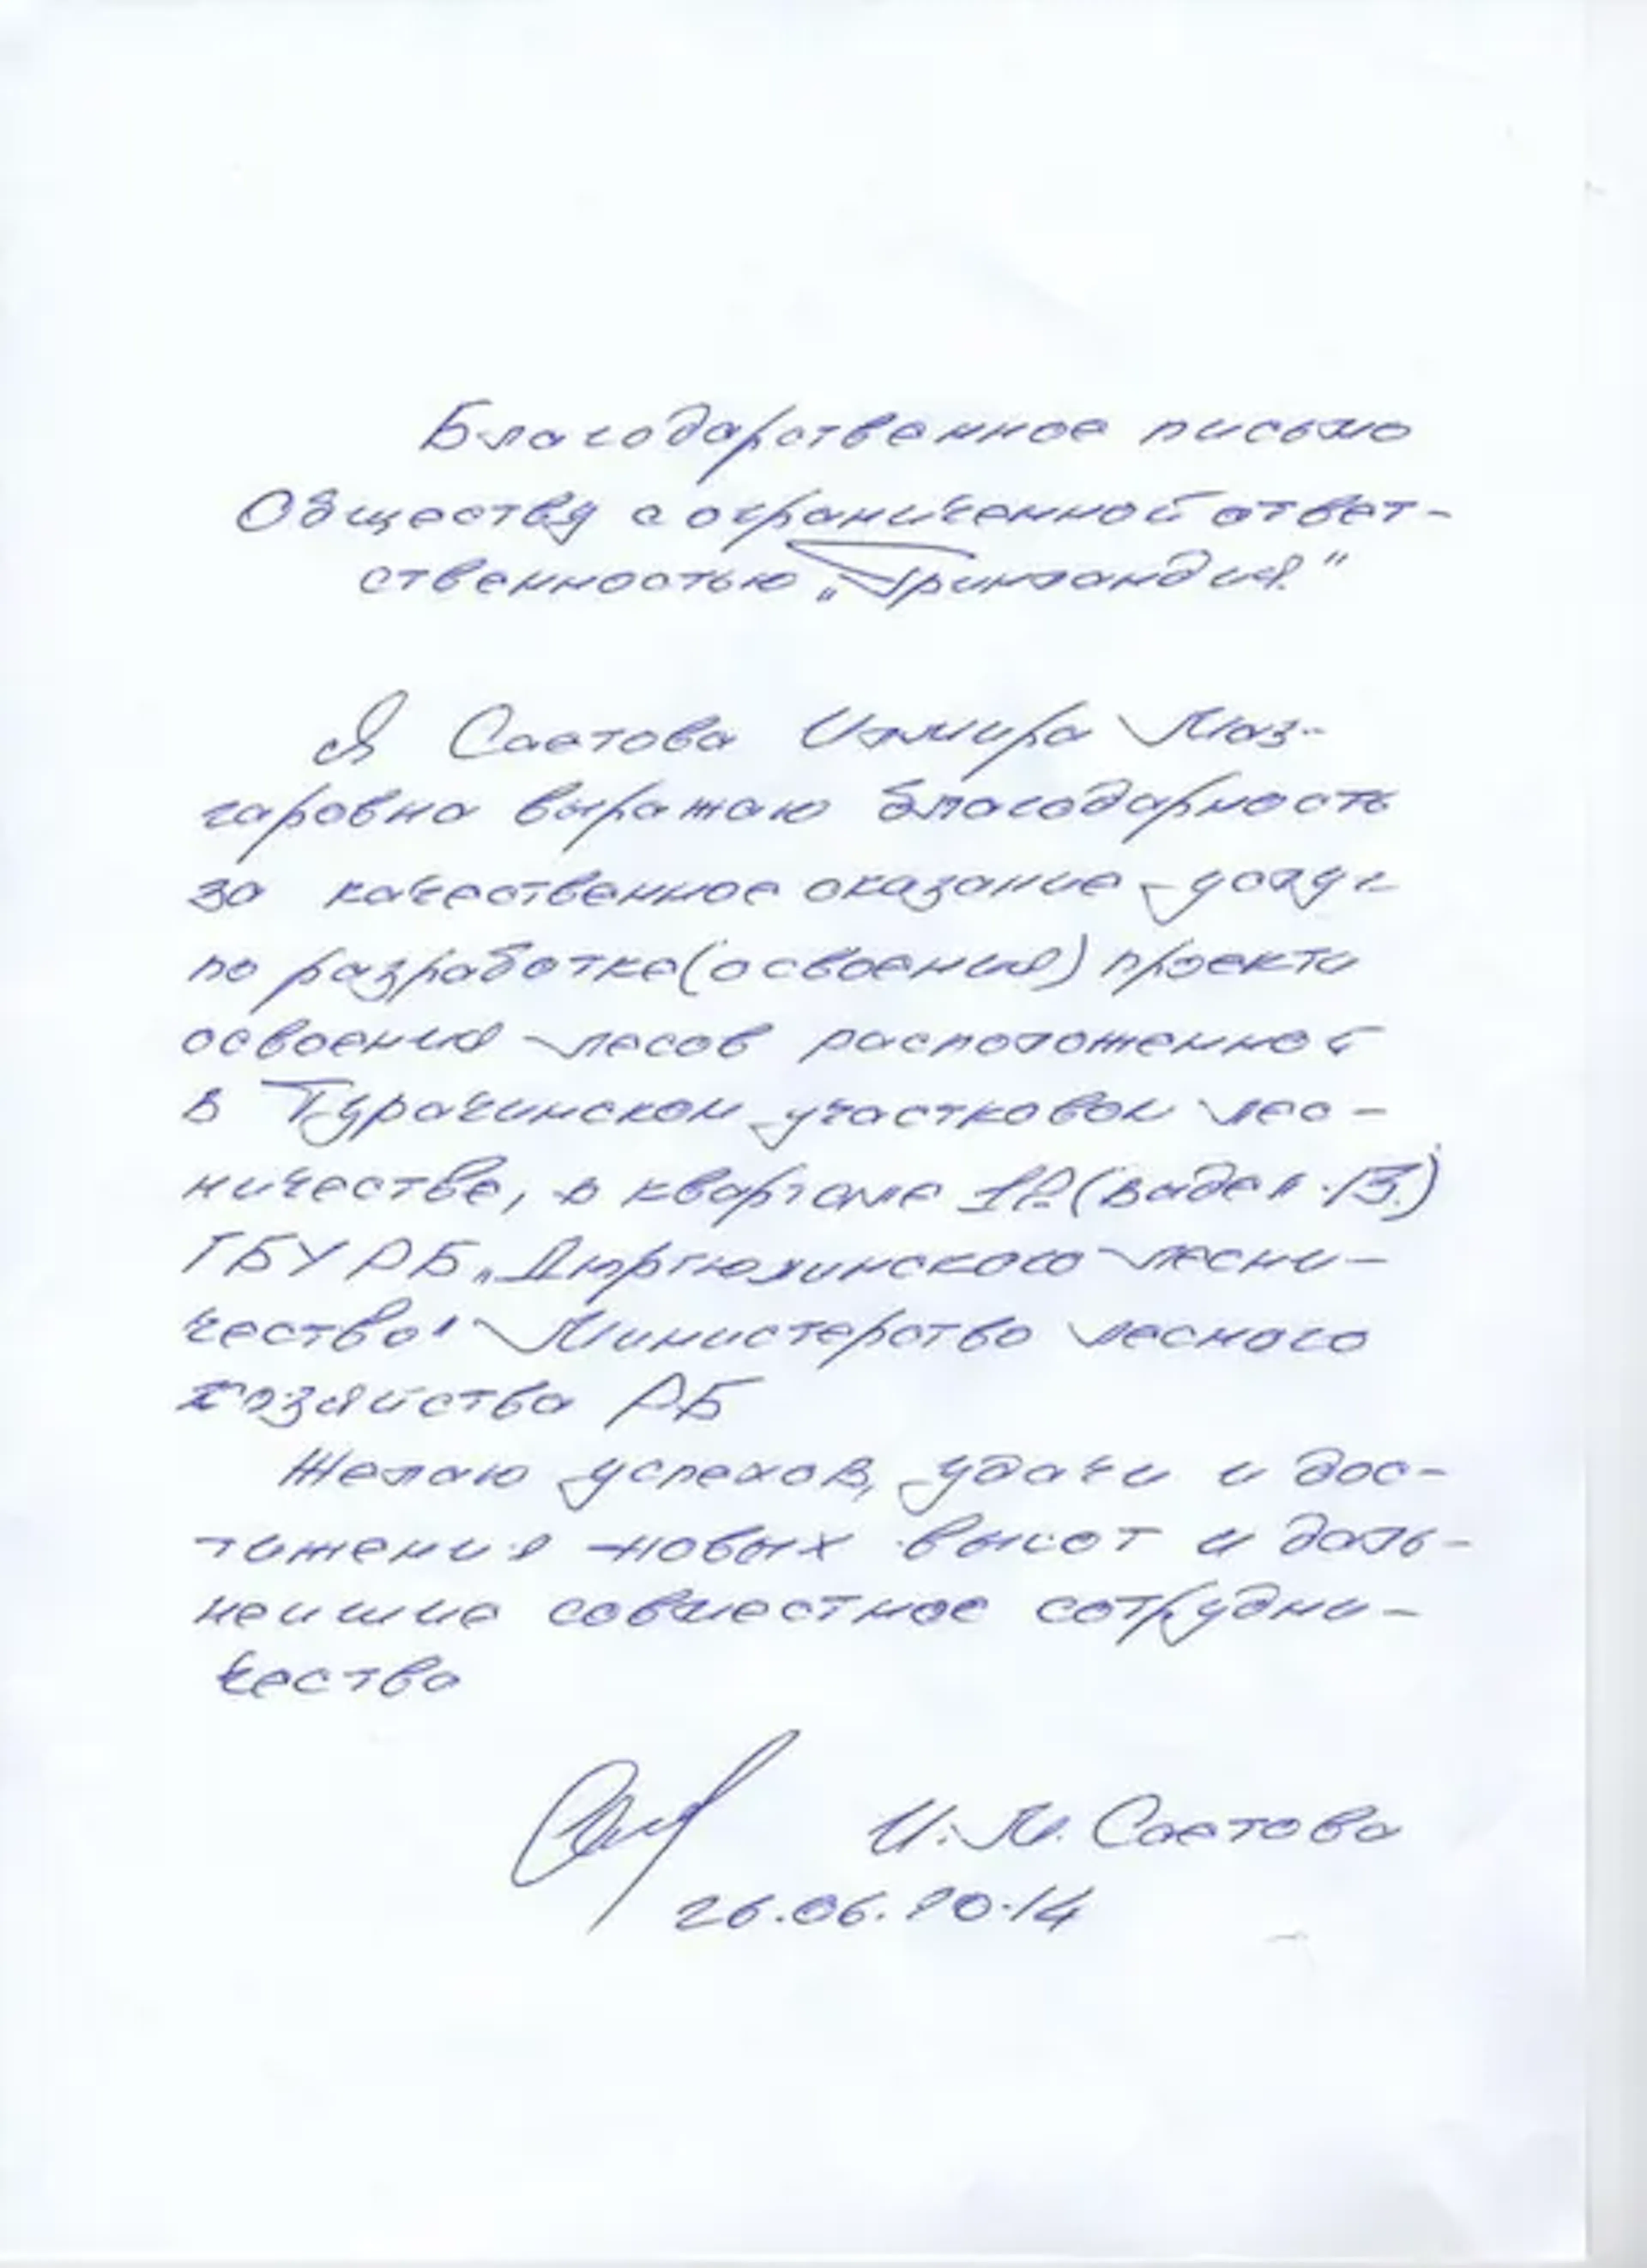 Благодарственное письмо
Обществу с ограниченной ответ-
ственностью „Гринландия"
Я Саетова Илмира Маз-
гаровна выражаю благодарность
за качественное оказание услуг
по разработке (освоения) проекта
освоения лесов расположенной
в Турачинском участковом лес-
ничестве, в квартале (выдел 13)
ГБУ РБ „Дюртюлинского лесни-
чество" Министерство лесного
хозяйства РБ
Желаю успехов, удачи и дос-
тижения новых высот и даль-
неишие совместное сотрудни-
чество
И.М. Саетова
26.06.2014